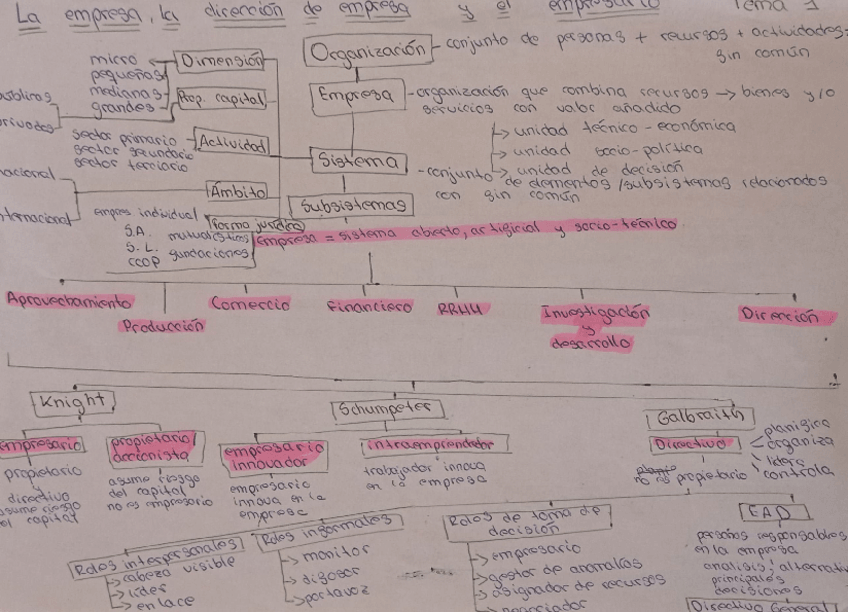 La empresa, la dirección de empresa y el empresario Tema 1
Organización - conjunto de personas + recursos + actividades =
fin común
Empresa - organización que combina recursos → bienes y/o
servicios con valor añadido
→ unidad técnico-económica
→ unidad socio-política
→ unidad de decisión
Sistema - conjunto de elementos/subsistemas relacionados
con fin común
Subsistemas
Dimensión
micro
pequeñas
medianas
grandes
Prop. capital
Actividad
sector primario
sector secundario
sector terciario
Ámbito
Forma jurídica
empres individual
S.A. mutualísticas
S.L. fundaciones
ccop
Empresa = sistema abierto, artificial y socio-técnico
Aprovechamiento
Producción
Comercio
Financiero
RRHH
Investigación
y
desarrollo
Dirección
Knight
empresario
propietario
y
directivo
asume riesgo
el capital
propietario
accionista
asume riesgo
del capital
no es empresario
Schumpeter
empresario
innovador
empresario
innova en la
empresa
intraemprendedor
trabajador innova
en la empresa
Galbraith
Directivo
planifica
organiza
lidera
controla
no es propietario
Roles interpersonales
→ cabeza visible
→ líder
→ enlace
Roles informales
→ monitor
→ difusor
→ portavoz
Roles de toma de
decisión
→ empresario
→ gestor de anomalías
→ asignador de recursos
→ negociador
EAD
personas responsables
en la empresa
analisis, alternativ
principales
decisiones
Directivo General